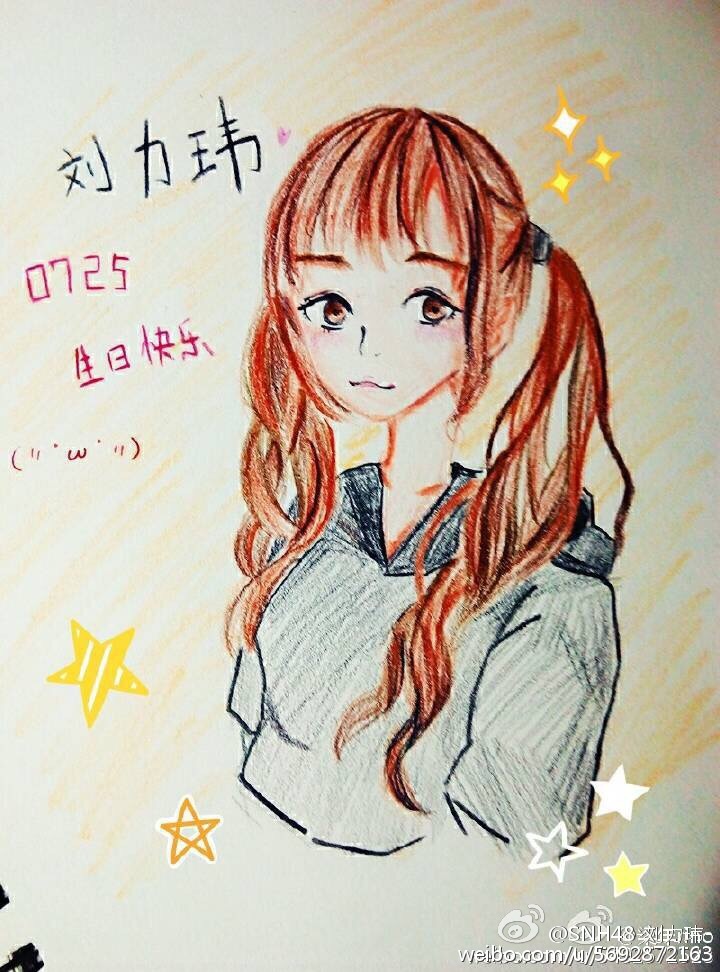 刘力玮
0725
生日快乐
("˙ω˙")
@SNH48-刘力玮-
weibo.com/u/5692872163